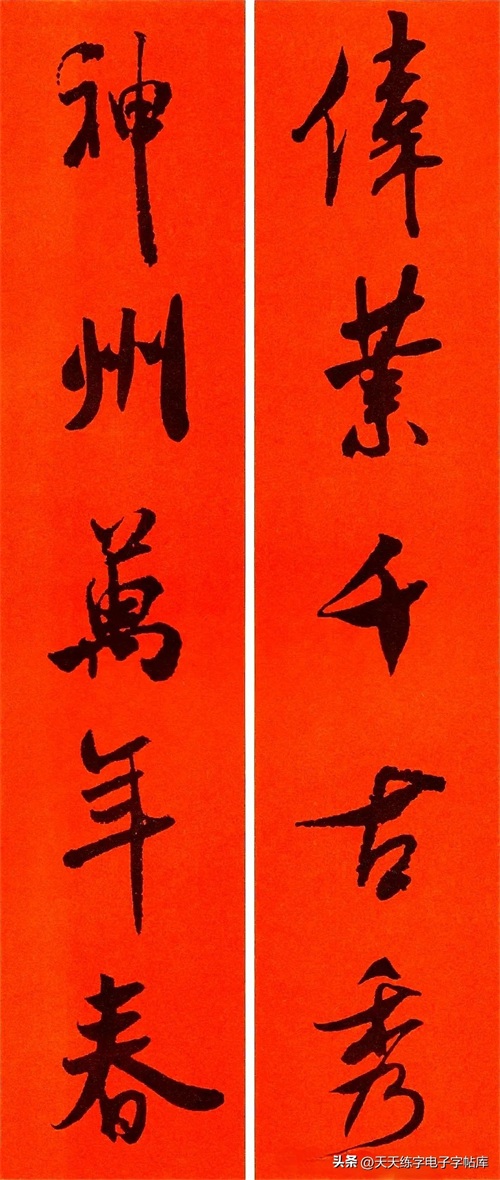 偉業千古秀
神州萬年春
头条 @天天练字电子字帖库